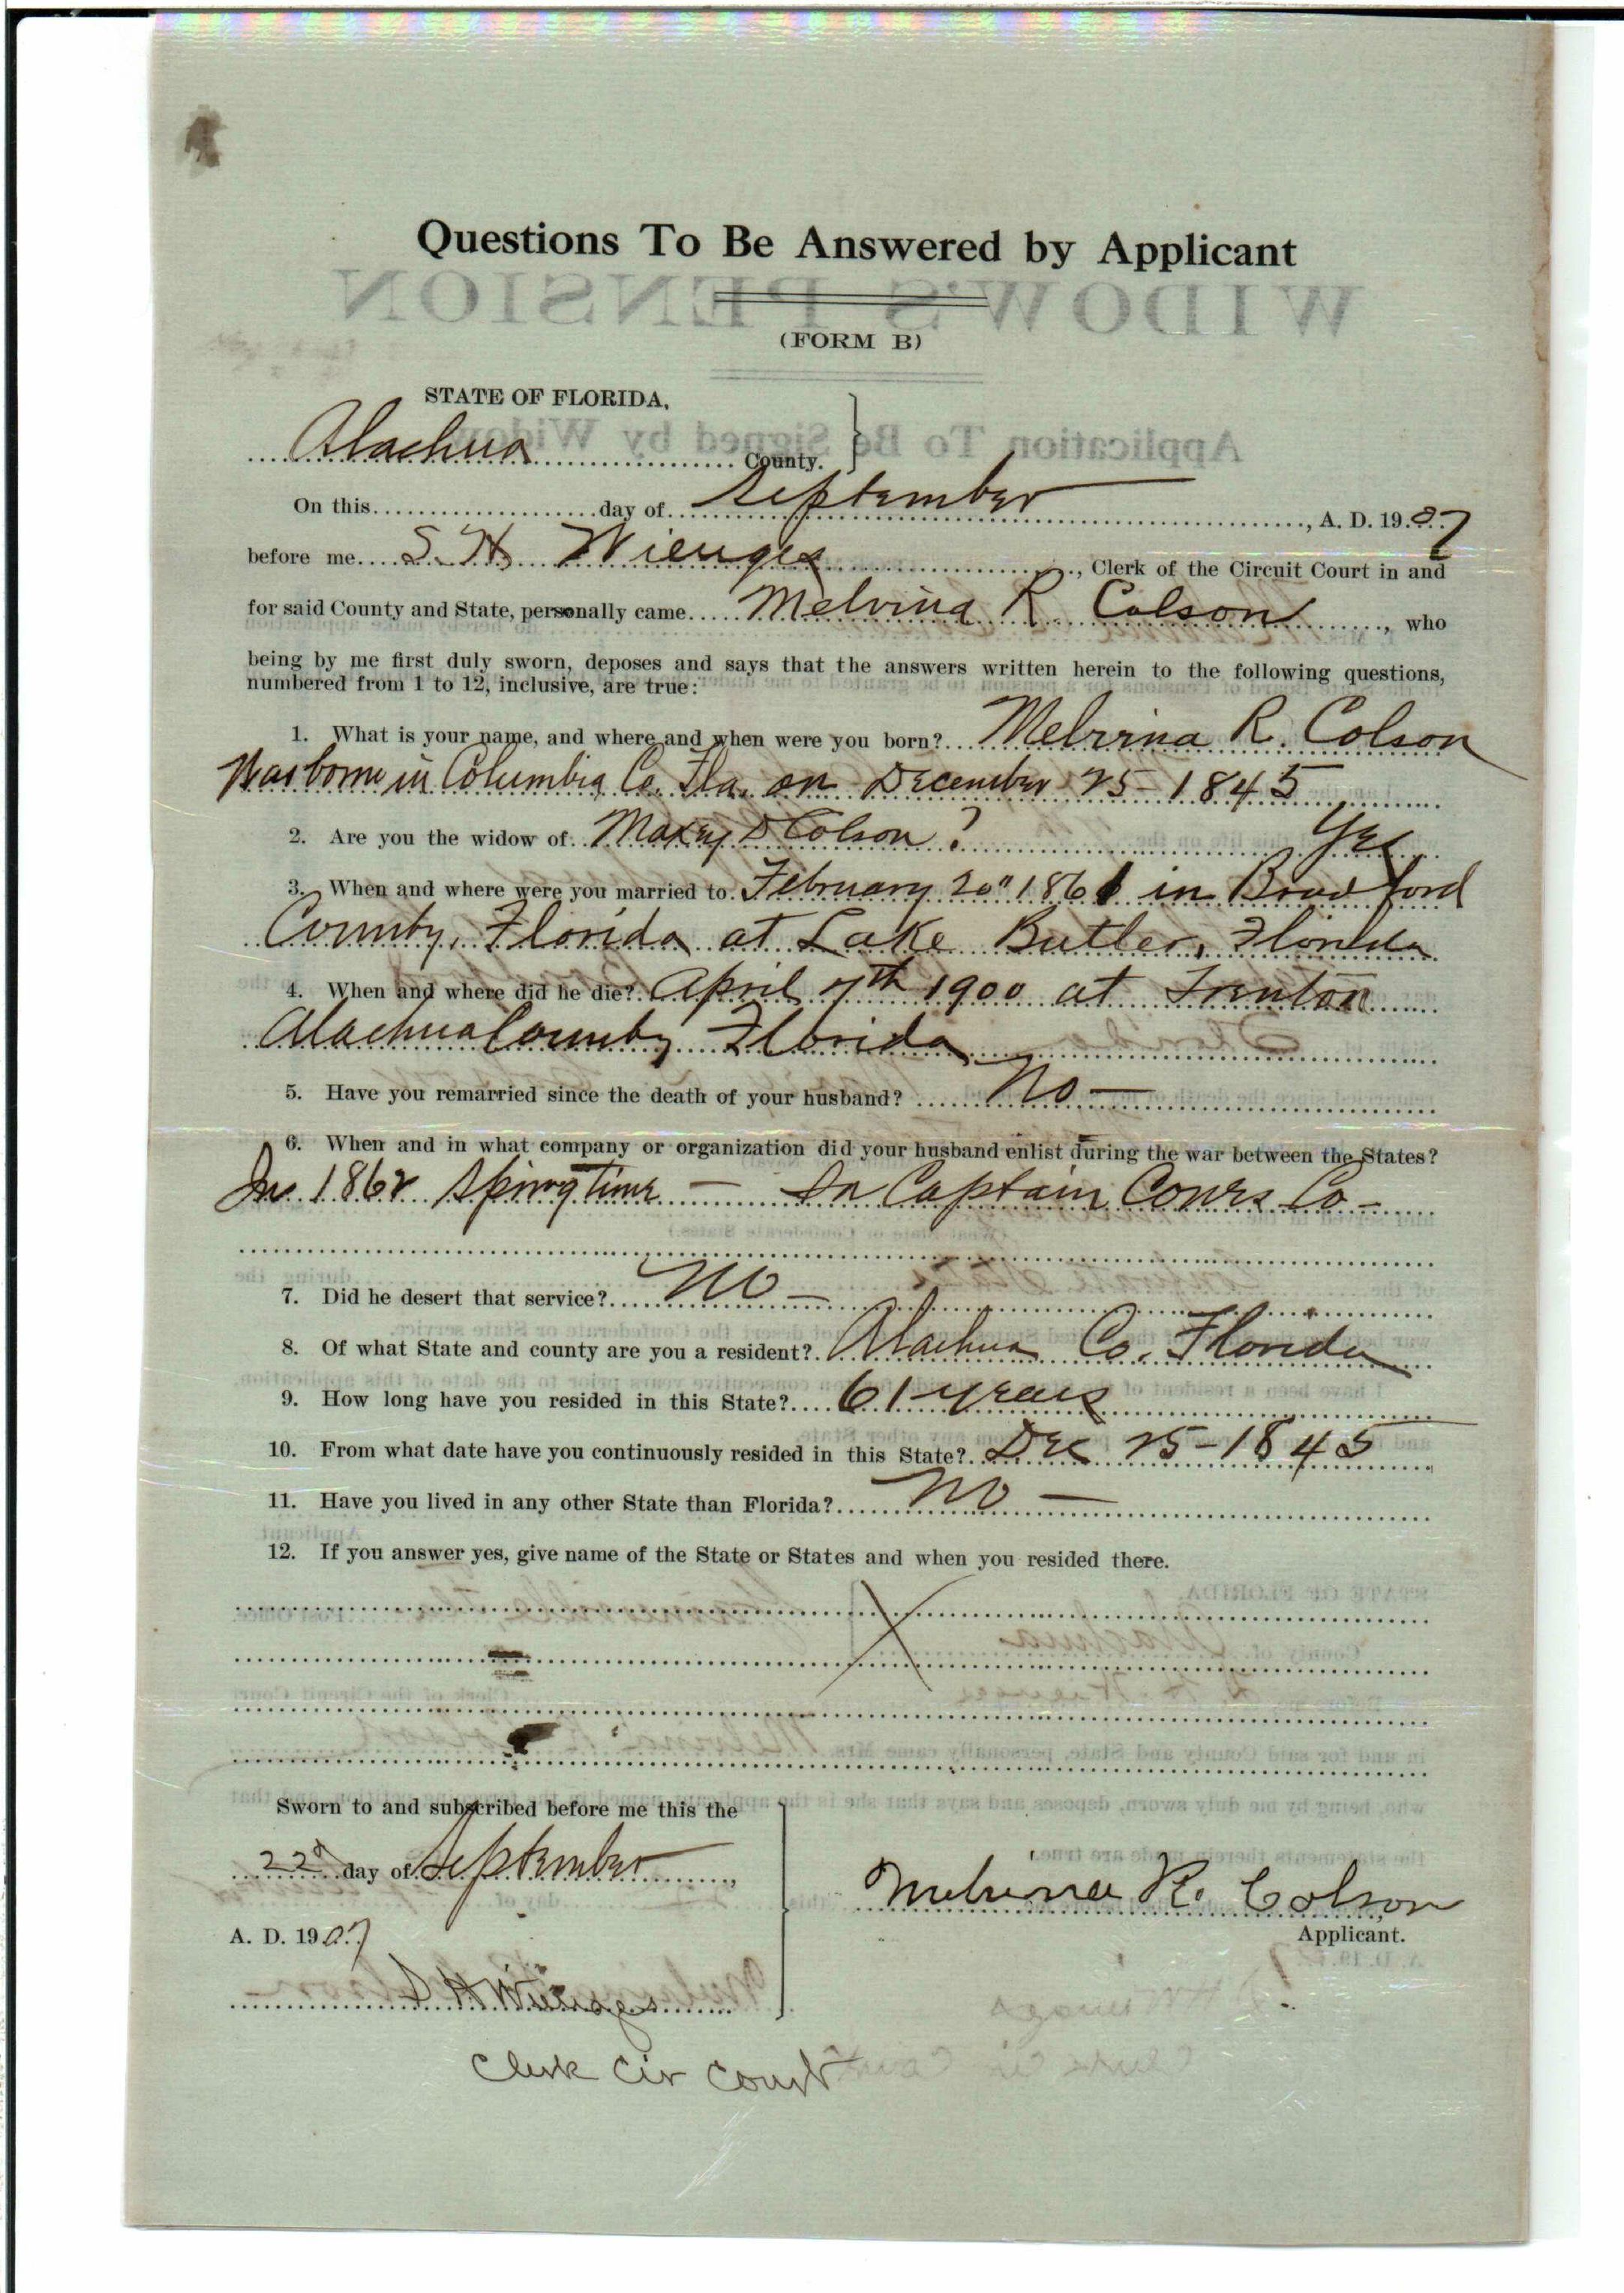 Questions To Be Answered by Applicant
WIDOW'S PENSION
(FORM B)
STATE OF FLORIDA,
Application To Be Signed by Widow
Alachua County.
On this day of September, A. D. 1907
before me S. H. Wienges, Clerk of the Circuit Court in and
for said County and State, personally came Melvina R. Colson, who
being by me first duly sworn, deposes and says that the answers written herein to the following questions,
numbered from 1 to 12, inclusive, are true:
1. What is your name, and where and when were you born? Melvina R. Colson
Was born in Columbia Co. Fla. on December 25-1845
2. Are you the widow of Maxey D Colson? Yes
3. When and where were you married to February 20" 1861 in Bradford
County, Florida at Lake Butler, Florida
4. When and where did he die? April 7th 1900 at Trenton
Alachua County Florida
5. Have you remarried since the death of your husband? No —
6. When and in what company or organization did your husband enlist during the war between the States?
In 1862 Spring time — In Captain Cones Co —
7. Did he desert that service? No —
8. Of what State and county are you a resident? Alachua Co. Florida
9. How long have you resided in this State? 61 years
10. From what date have you continuously resided in this State? Dec 25-1845
11. Have you lived in any other State than Florida? No —
12. If you answer yes, give name of the State or States and when you resided there.
Sworn to and subscribed before me this the
22d day of September,
A. D. 1907
Melvina R. Colson
Applicant.
S H Wienges
Clerk Cir Court